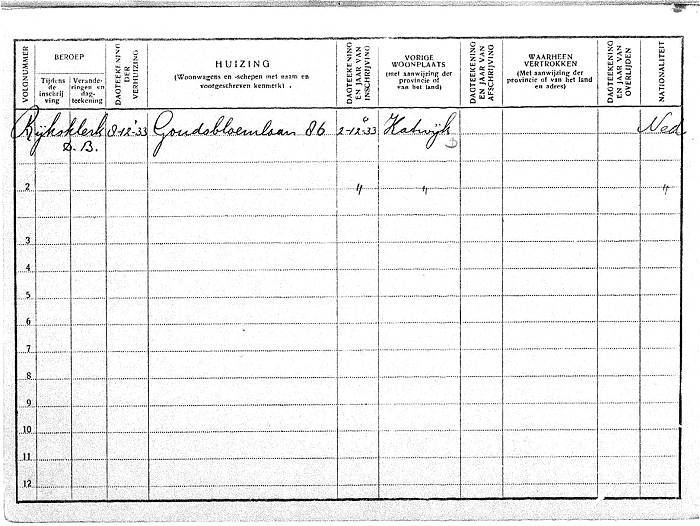 VOLGNUMMER
BEROEP
Tijdens de inschrijving
Veranderingen en dagteekening
DAGTEEKENING DER VERHUIZING
HUIZING
(Woonwagens en -schepen met naam en
voorgeschreven kenmerk)
DAGTEEKENING EN JAAR VAN INSCHRIJVING
VORIGE
WOONPLAATS
(met aanwijzing der
provincie of
van het land)
DAGTEEKENING EN JAAR VAN AFSCHRIJVING
WAARHEEN
VERTROKKEN
(Met aanwijzing der
provincie of van het land
en adres)
DAGTEEKENING EN JAAR VAN OVERLIJDEN
NATIONALITEIT
Rijksklerk 8-12-'33 Goudsbloemlaan 86 2-12-33 Katwijk Ned.
D.B.
2 " " "
3
4
5
6
7
8
9
10
11
12